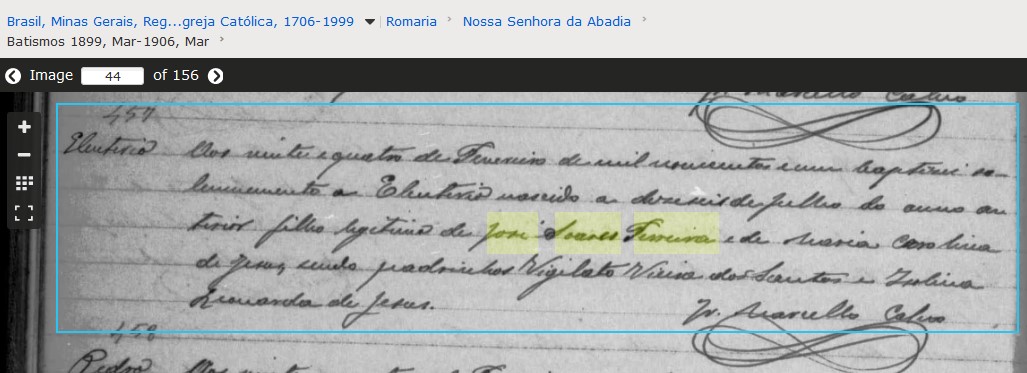 Brasil, Minas Gerais, Reg...greja Católica, 1706-1999 Romaria Nossa Senhora da Abadia
Batismos 1899, Mar-1906, Mar
Image 44 of 156
Fr. Marcello Calvo
457
Eleuterio Aos vinte e quatro de Fevereiro de mil novecentos e um baptisei so-
lemnemente a Eleuterio nascido a dezeseis de Julho do anno an
terior filho legitimo de José Soares Ferreira e de Maria Carolina
de Jesus, sendo padrinhos Vigilato Vieira dos Santos e Isolina
Leonarda de Jesus.
Fr. Marcello Calvo
458
Pedro Aos vinte e quatro de Fevereiro